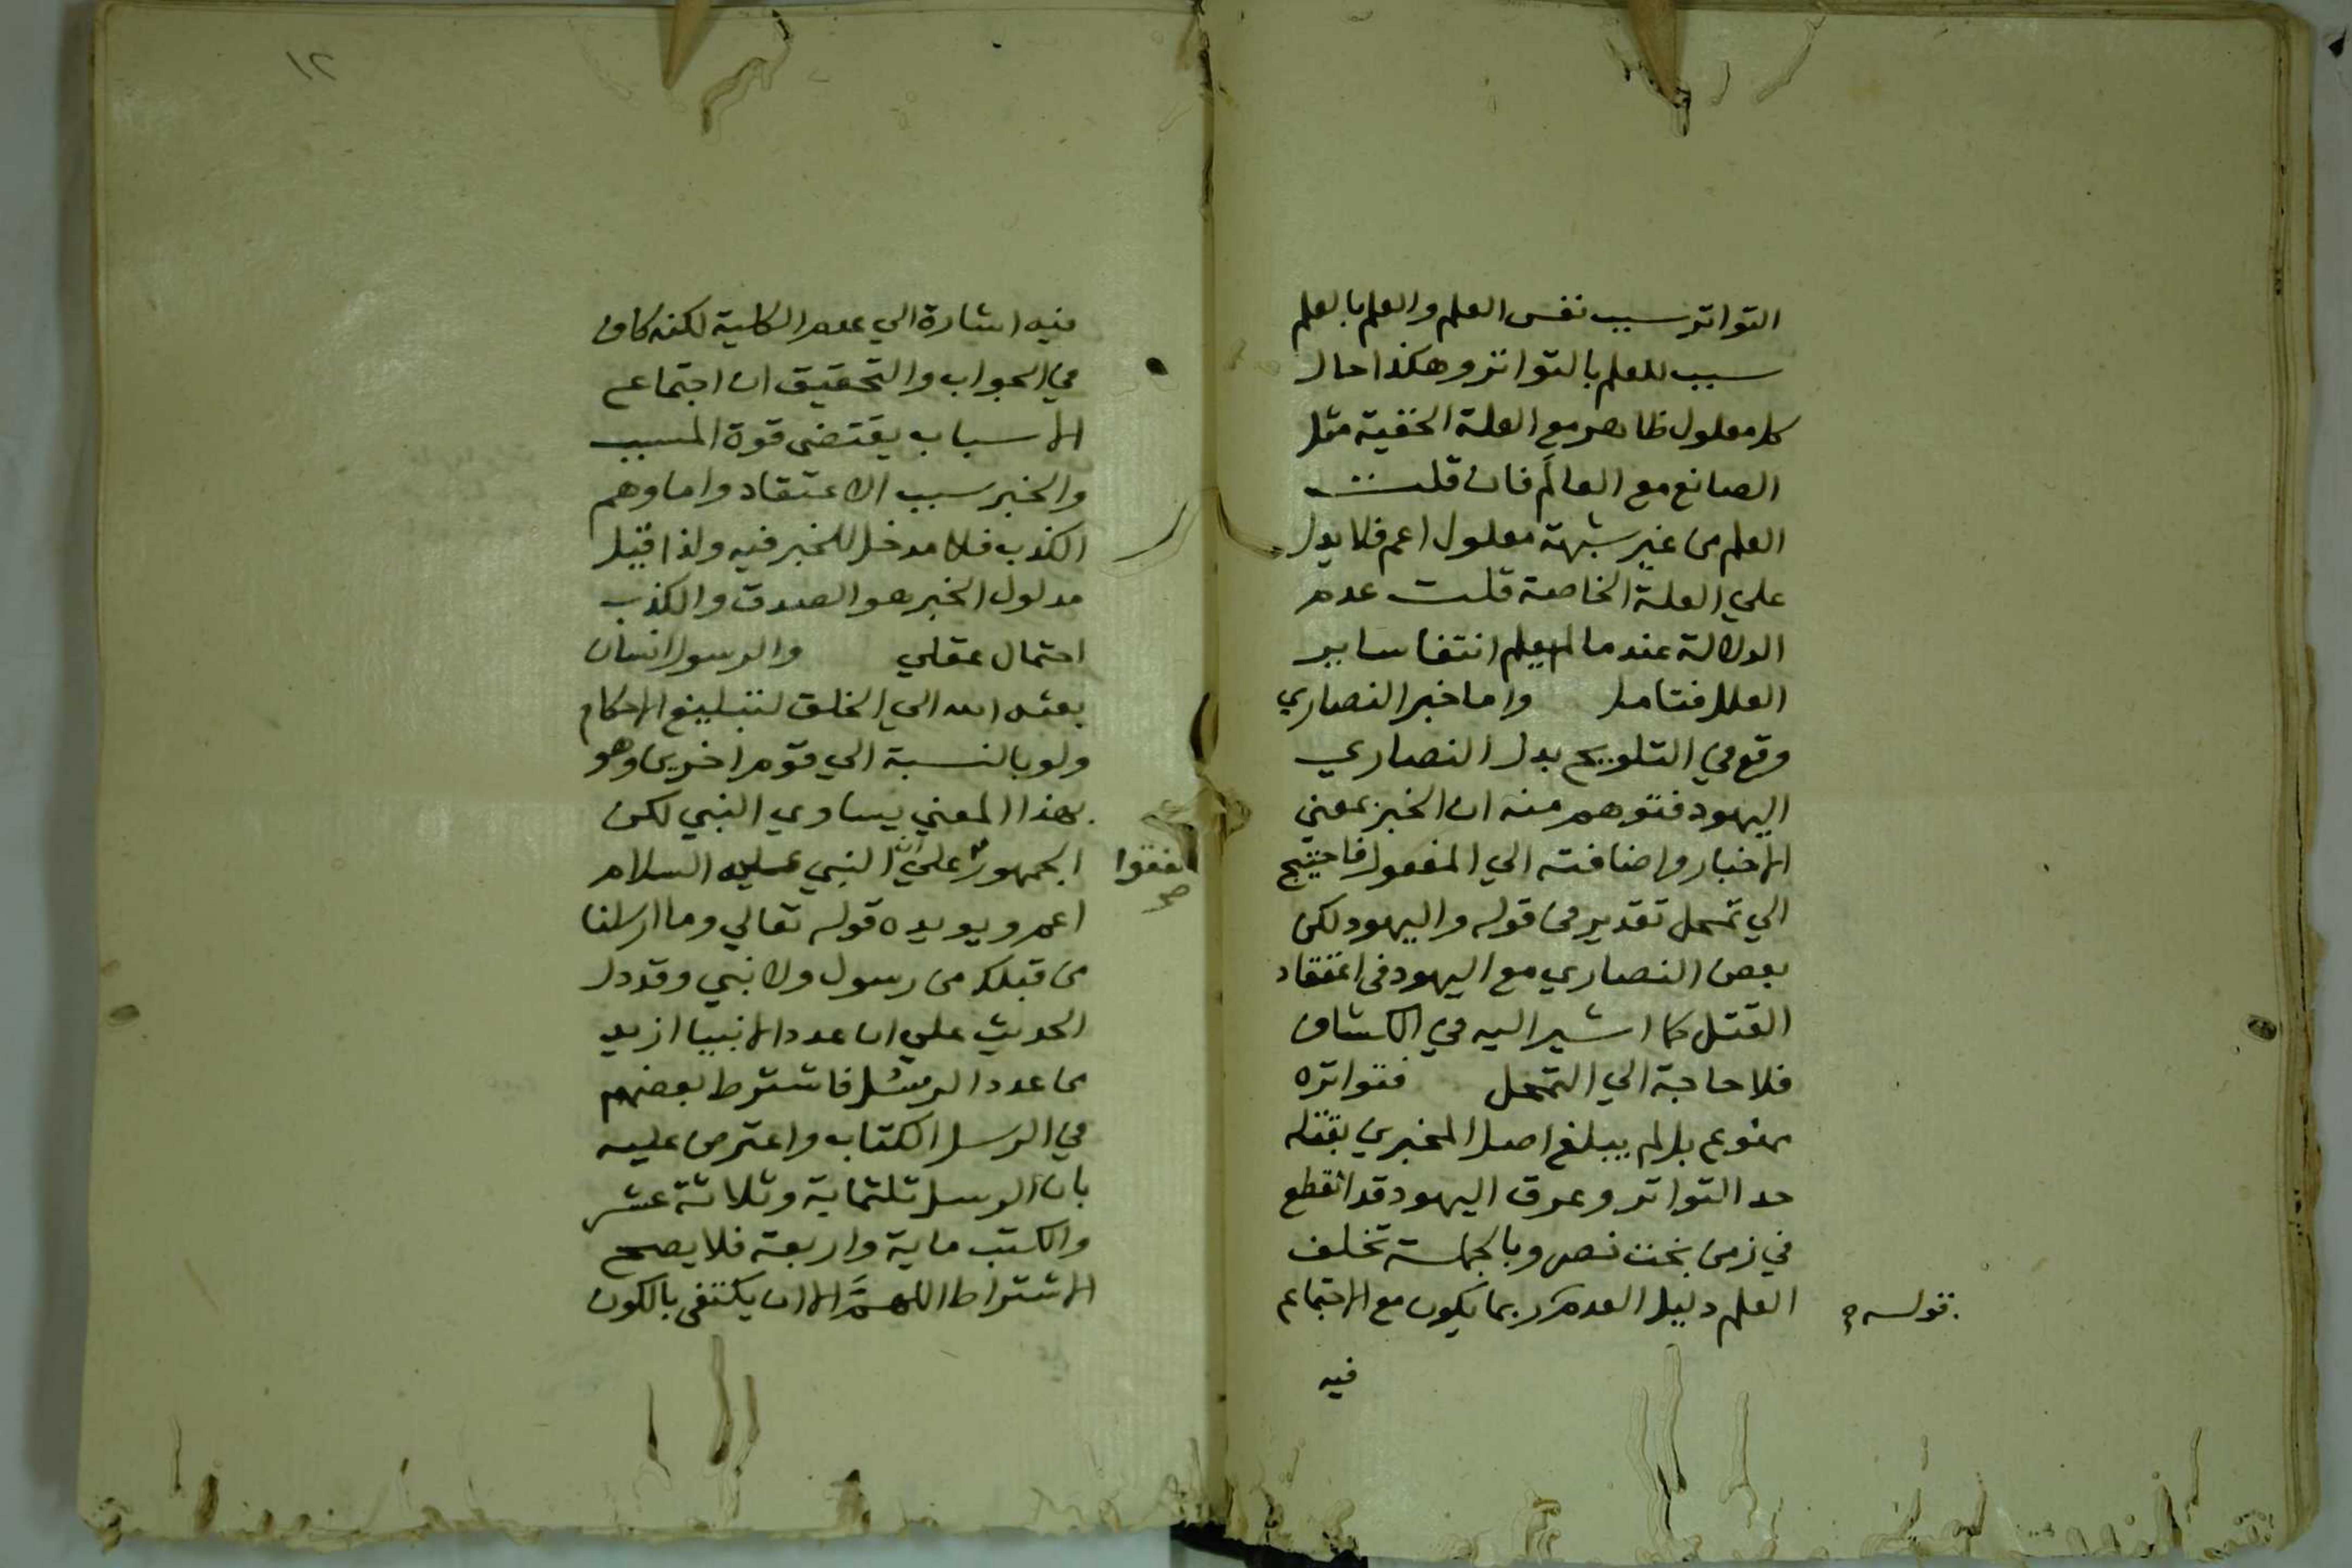 التواتر سبب نفس العلم والعلم بالعلم
سبب للعلم بالتواتر وهكذا حال
كل معلول ظاهر مع العلة الخفية مثل
الصانع مع العالَم فان قلت
العلم من غير شبهة معلول اعم فلا يدل
علي العلة الخاصة قلت عدم
الدلالة عند ما لم يعلم انتفا ساير
العلل فتامل واما خبر النصاري
وقع في التلويح بدل النصاري
اليهود فتوهم منه ان الخبر بمعني
الاخبار واضافته الي المفعول فاحتيج
الي تمحل تقدير في قوله واليهود لكن
بعض النصاري مع اليهود في اعتقاد
القتل كما اشير اليه في الكشاف
فلا حاجة الي التمحل فتواتره
ممنوع بل لم يبلغ اصل المخبرين بقتله
حد التواتر وعرق اليهود قد انقطع
في زمن بخت نصر وبالجملة تخلف
العلم دليل العدم ربما يكون مع الاجتماع
قوله
فيه
١٢
فيه اشارة الي عدم الكلية لكنه كاف
في الجواب والتحقيق ان اجتماع
الاسباب يقتضي قوة المسبب
والخبر سبب الاعتقاد واما وهم
الكذب فلا مدخل للخبر فيه ولذا قيل
مدلول الخبر هو الصدق والكذب
احتمال عقلي والرسول انسان
بعثه الله الي الخلق لتبليغ الاحكام
ولو بالنسبة الي قوم اخرين وهو
بهذا المعني يساوي النبي لكن
الجمهور علي ان النبي عليه السلام
اتفقوا صح
اعم ويويده قوله تعالي وما ارسلنا
من قبلك من رسول ولا نبي وقد دل
الحديث علي ان عدد الانبيا ازيد
من عدد الرسُل فاشترط بعضهم
في الرسل الكتاب واعترض عليه
بان الرسل ثلثماية وثلاثة عشر
والكتب ماية واربعة فلا يصح
الاشتراط اللهمَّ الا ان يكتفي بالكون